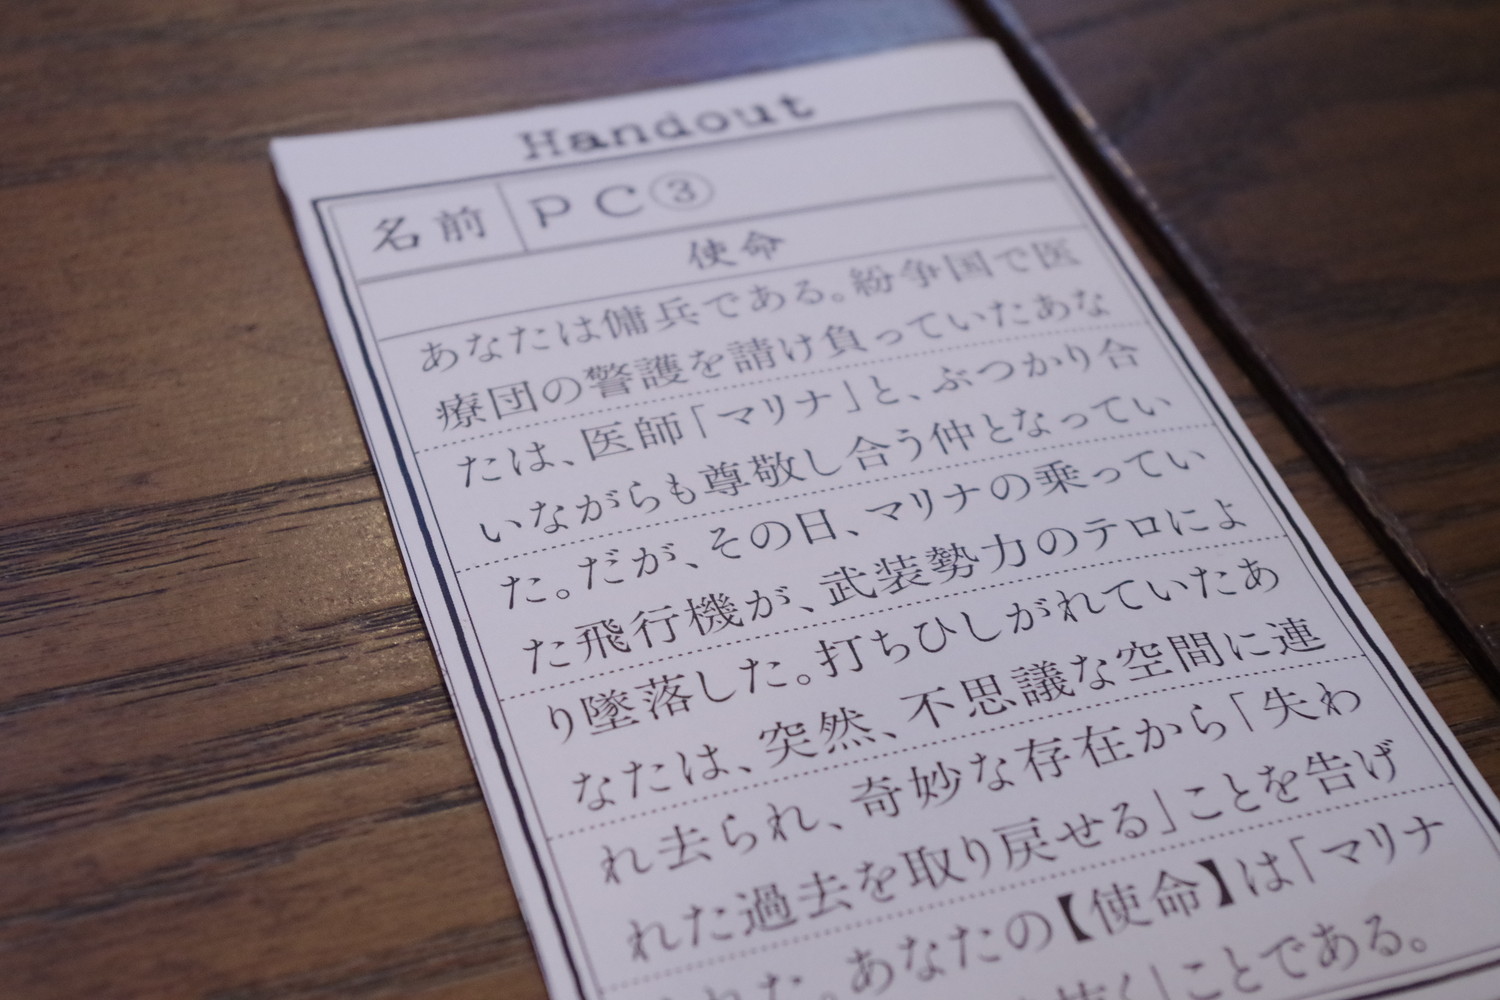 Handout
名前 PC③
使命
あなたは傭兵である。紛争国で医
療団の警護を請け負っていたあな
たは、医師「マリナ」と、ぶつかり合
いながらも尊敬し合う仲となってい
た。だが、その日、マリナの乗ってい
た飛行機が、武装勢力のテロによ
り墜落した。打ちひしがれていたあ
なたは、突然、不思議な空間に連
れ去られ、奇妙な存在から「失わ
れた過去を取り戻せる」ことを告げ
られた。あなたの【使命】は「マリナ
抜く」ことである。